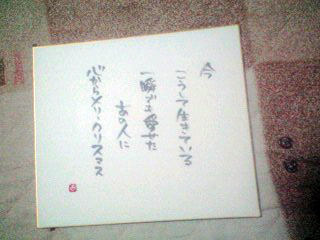 今
こうして生きている
一瞬でも愛せた
あの人に
心からメリークリスマス